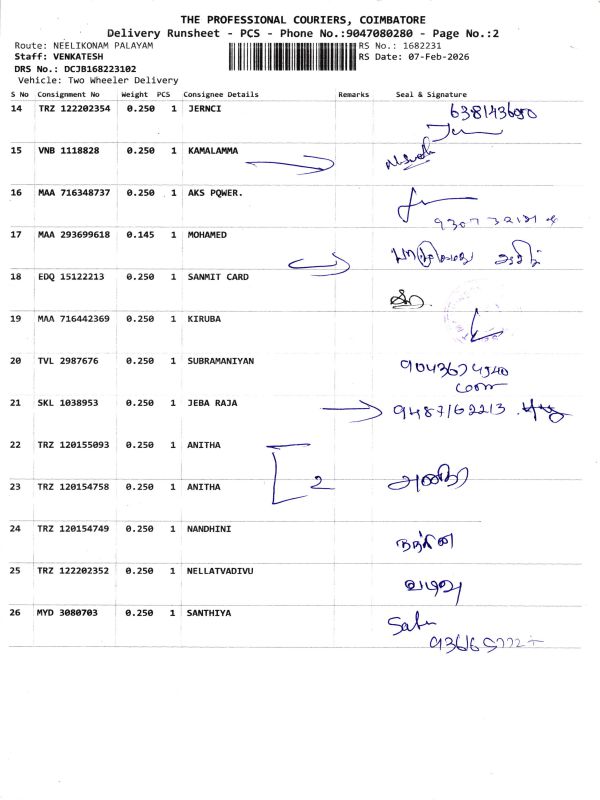 THE PROFESSIONAL COURIERS, COIMBATORE
Delivery Runsheet - PCS - Phone No.:9047080280 - Page No.:2
Route: NEELIKONAM PALAYAM RS No.: 1682231
Staff: VENKATESH RS Date: 07-Feb-2026
DRS No.: DCJB168223102
Vehicle: Two Wheeler Delivery
S No Consignment No Weight PCS Consignee Details Remarks Seal & Signature
14 TRZ 122202354 0.250 1 JERNCI
15 VNB 1118828 0.250 1 KAMALAMMA
16 MAA 716348737 0.250 1 AKS PQWER.
17 MAA 293699618 0.145 1 MOHAMED
18 EDQ 15122213 0.250 1 SANMIT CARD
19 MAA 716442369 0.250 1 KIRUBA
20 TVL 2987676 0.250 1 SUBRAMANIYAN
21 SKL 1038953 0.250 1 JEBA RAJA 9487162213
22 TRZ 120155093 0.250 1 ANITHA
23 TRZ 120154758 0.250 1 ANITHA 2 அனிதா
24 TRZ 120154749 0.250 1 NANDHINI
25 TRZ 122202352 0.250 1 NELLATVADIVU வடிவு
26 MYD 3080703 0.250 1 SANTHIYA